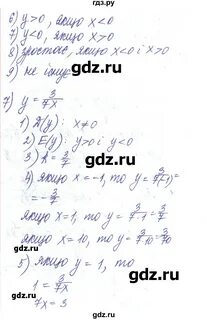 гдз.ру
6) y>0, якщо x<0
7) y<0, якщо x>0
8) зростає, якщо x<0 і x>0
9) не існує
gdz.ru
7) y = 3/7x
1) D(y): x≠0
2) E(y): y>0 і y<0
3) k = 3/7
4) якщо x=-1, то y = 3/7·(-1) =
= -3/7
якщо x=1, то y = 3/7·1 = 3/7
якщо x=10, то y = 3/7·10 = 3/70
5) якщо y=1, то
1 = 3/7x
7x = 3
gdz.ru